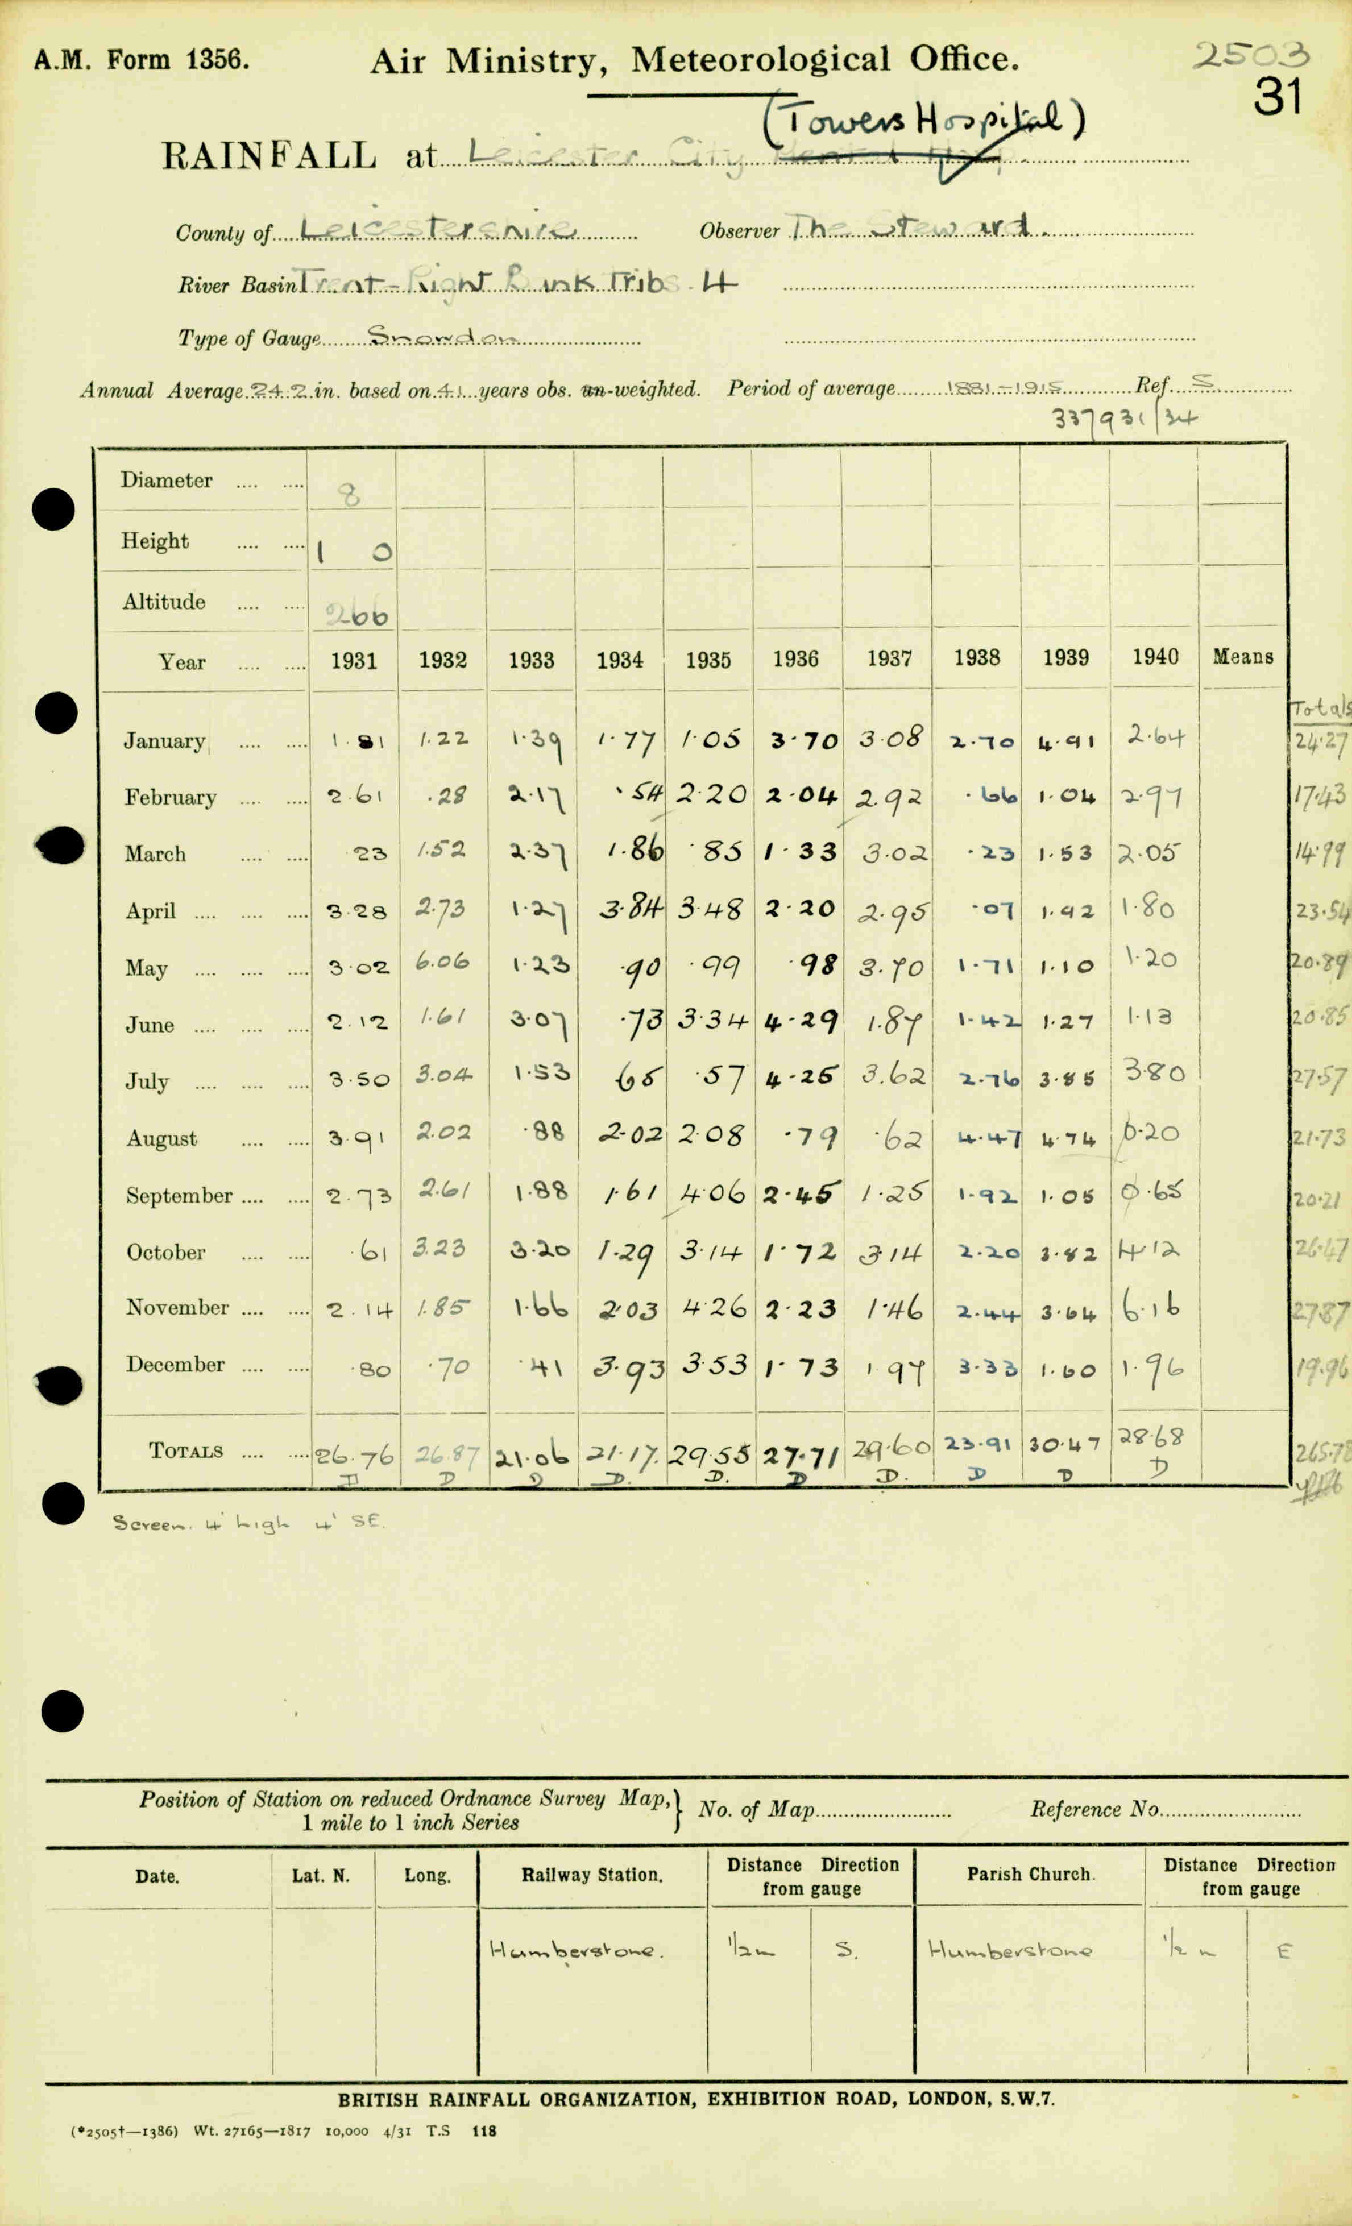 A.M. Form 1356. Air Ministry, Meteorological Office. 2503
31
(Towers Hospital)
RAINFALL at Leicester City Mental Hosp.
County of Leicestershire Observer The Steward.
River Basin Trent-Right Bank Tribs 4
Type of Gauge Snowdon
Annual Average 24.2 in. based on 41 years obs. un-weighted. Period of average 1881-1915 Ref. S.
337931/34
Diameter .... .... 8
Height .... .... 1 0
Altitude .... .... 266
Year .... .... 1931 1932 1933 1934 1935 1936 1937 1938 1939 1940 Means
Totals
January .... .... 1.81 1.22 1.39 1.77 1.05 3.70 3.08 2.70 4.91 2.64 24.27
February .... .... 2.61 .28 2.17 .54 2.20 2.04 2.92 .66 1.04 2.97 17.43
March .... .... .23 1.52 2.37 1.86 .85 1.33 3.02 .23 1.53 2.05 14.99
April .... .... .... 3.28 2.73 1.27 3.84 3.48 2.20 2.95 .07 1.92 1.80 23.54
May .... .... .... 3.02 6.06 1.23 .90 .99 .98 3.70 1.71 1.10 1.20 20.89
June .... .... .... 2.12 1.61 3.07 .73 3.34 4.29 1.87 1.42 1.27 1.13 20.85
July .... .... .... 3.50 3.04 1.53 65 .57 4.25 3.62 2.76 3.85 3.80 27.57
August .... .... 3.91 2.02 .88 2.02 2.08 .79 .62 4.47 4.74 0.20 21.73
September .... .... 2.73 2.61 1.88 1.61 4.06 2.45 1.25 1.92 1.05 0.65 20.21
October .... .... .61 3.23 3.20 1.29 3.14 1.72 3.14 2.20 3.82 4.12 26.47
November .... .... 2.14 1.85 1.66 2.03 4.26 2.23 1.46 2.44 3.64 6.16 27.87
December .... .... .80 .70 .41 3.93 3.53 1.73 1.97 3.33 1.60 1.96 19.96
TOTALS .... .... 26.76 26.87 21.06 21.17. 29.55 27.71 29.60 23.91 30.47 28.68 265.78
D D D D. D. D D. D D D
Screen. 4' high 4' SE.
Position of Station on reduced Ordnance Survey Map, } No. of Map Reference No.
1 mile to 1 inch Series
Date. Lat. N. Long. Railway Station. Distance Direction from gauge Parish Church. Distance Direction from gauge
Humberstone. 1/2 m S. Humberstone 1/2 m E
BRITISH RAINFALL ORGANIZATION, EXHIBITION ROAD, LONDON, S.W.7.
(*2505†—1386) Wt. 27165—1817 10,000 4/31 T.S 118